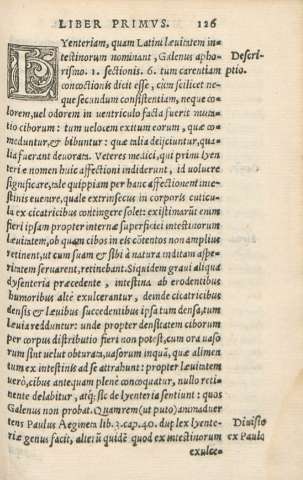 LIBER PRIMVS. 126
LYenteriam, quam Latini læuitatem in-
testinorum nominant, Galenus apho-
rismo. 1. sectionis. 6. tum carentiam
concoctionis dicit esse, cùm scilicet ne-
que secundum consistentiam, neque co-
lorem, uel odorem in ventriculo facta fuerit muta-
tio ciborum: tum uelocem exitum eorum, quæ co-
meduntur, & bibuntur: quæ talia deijciuntur, qua-
lia fuerant deuorata. Veteres medici, qui primi lyen
teriæ nomen huic affectioni indiderunt, id uoluere
significare, tale quippiam per hanc affectionem inte-
stinis euenire, quale extrinsecus in corporis cuticu-
la ex cicatricibus contingere solet: existimarũt enim
fieri ipsam propter internæ superficiei intestinorum
læuitatem, ob quam cibos in eis cõtentos non amplius
retinent, ut cum suam & sibi à natura inditam aspe-
ritatem seruarent, retinebant. Siquidem graui aliqua
dysenteria præcedente, intestina ab erodentibus
humoribus altè exulcerantur, deinde cicatricibus
densis & læuibus succedentibus ipsa tum densa, tum
læuia redduntur: unde propter densitatem ciborum
per corpus distributio fieri non potest, cum ora uaso
rum sint uelut obturata, uasorum inquã, quæ alimen
tum ex intestinis ad se attrahunt: propter læuitatem
uerò, cibus antequam plenè concoquatur, nullo reti-
nente delabitur, atq; sic de lyenteria sentiunt: quos
Galenus non probat. Quamrem (ut puto) animaduer
tens Paulus Aegineta lib. 3. cap. 40. duplex lyente-
riæ genus facit, alterũ quidẽ quod ex intestinorum
exulce-
Descri-
ptio.
Diuisio
ex Paulo